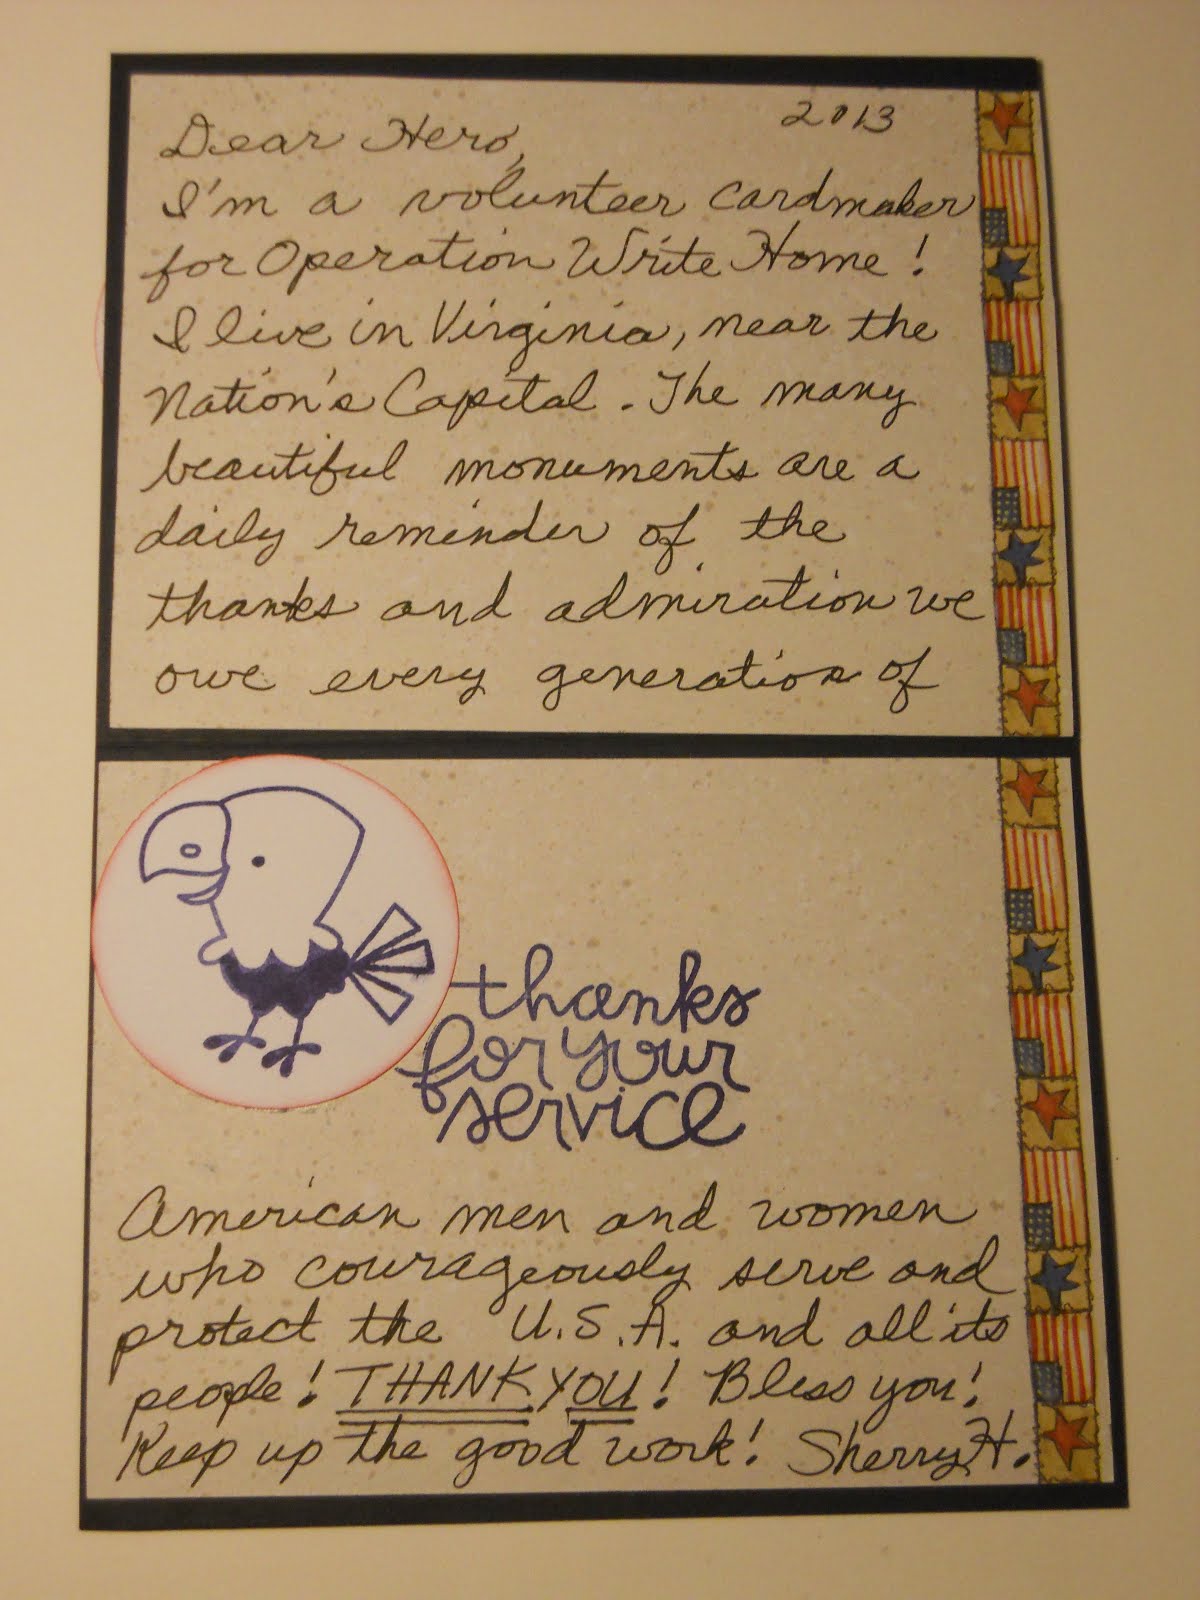 2013
Dear Hero,
I'm a volunteer cardmaker
for Operation Write Home!
I live in Virginia, near the
Nation's Capital. The many
beautiful monuments are a
daily reminder of the
thanks and admiration we
owe every generation of
thanks
for your
service
American men and women
who courageously serve and
protect the U.S.A. and all its
people! THANK YOU! Bless you!
Keep up the good work! Sherry H.